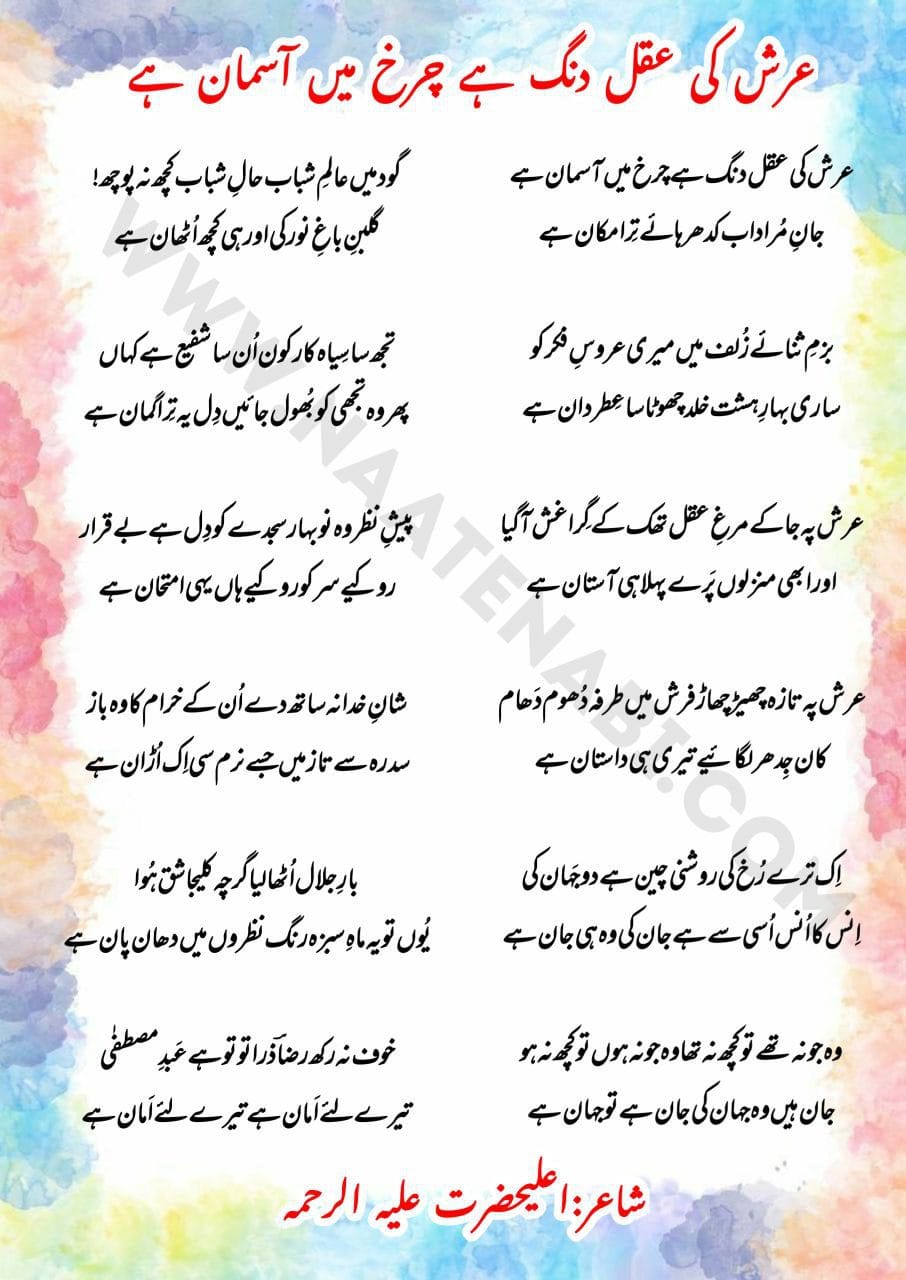 عرش کی عقل دنگ ہے چرخ میں آسمان ہے
عرش کی عقل دنگ ہے چرخ میں آسمان ہے
جانِ مُراد اب کدھر ہائے تِرا مکان ہے
بزمِ ثنائے زُلف میں میری عروسِ فکر کو
ساری بہارِ ہشت خلد چھوٹا سا عِطر دان ہے
عرش پہ جا کے مرغِ عقل تھک کے گِرا غش آ گیا
اور ابھی منزلوں پَرے پہلا ہی آستان ہے
عرش پہ تازہ چھیڑ چھاڑ فرش میں طرفہ دُھوم دَھام
کان جِدھر لگائیے تیری ہی داستان ہے
اِک ترے رُخ کی روشنی چین ہے دو جہَان کی
اِنس کا اُنس اُسی سے ہے جان کی وہ ہی جان ہے
وہ جو نہ تھے تو کچھ نہ تھا وہ جو نہ ہوں تو کچھ نہ ہو
جان ہیں وہ جہان کی جان ہے تو جہان ہے
گود میں عالمِ شباب حالِ شباب کچھ نہ پوچھ!
گلبنِ باغِ نور کی اور ہی کچھ اُٹھان ہے
تجھ سا سِیاہ کار کون اُن سا شفیع ہے کہاں
پھر وہ تجھی کو بُھول جائیں دِل یہ تِرا گمان ہے
پیشِ نظر وہ نو بہار سجدے کو دِل ہے بے قرار
روکیے سر کو روکیے ہاں یہی امتحان ہے
شانِ خدا نہ ساتھ دے اُن کے خرام کا وہ باز
سدرہ سے تا ز میں جسے نرم سی اِک اُڑان ہے
بارِ جلال اُٹھا لیا گرچہ کلیجا شق ہُوا
یُوں تو یہ ماہِ سبزہ رنگ نظروں میں دھان پان ہے
خوف نہ رکھ رضاؔ ذرا تو تو ہے عَبدِ مصطفیٰ
تیرے لئے اَمان ہے تیرے لئے اَمان ہے
شاعر:اعلیحضرت علیہ الرحمہ
WWW.NAATENABI.COM